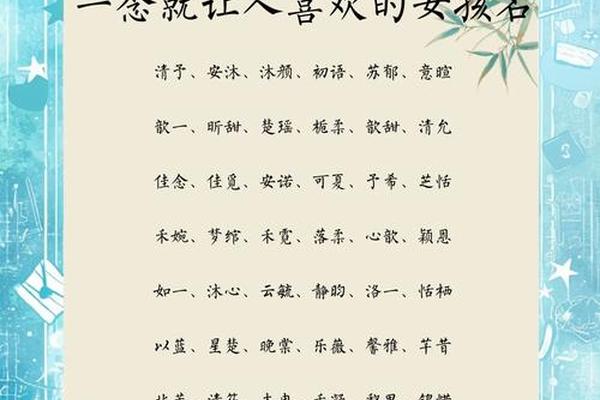 一念就让人喜欢的女孩名
清予、安沐、沐颜、初语、苏郁、意暄
歆一、昕甜、楚瑶、栀柔、歆甜、清允
佳念、佳觅、安诺、可夏、予希、芝恬
禾婉、梦绾、禾霓、落柔、心歆、颖恩
如一、沐心、云毓、静昀、洛一、恬栖
以蓝、星楚、晚棠、乐薇、馨雅、芊昔